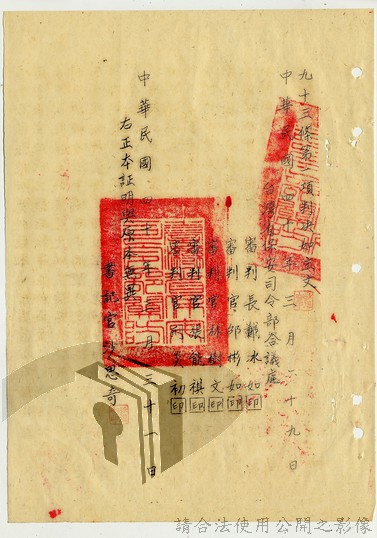 九十三條第一項判決如主文
中華民國四十一年三月二十九日
台灣省保安司令部合議庭
審判長鄭冰如印
審判官邱彬如印
審判官 樹文印
審判官張 祺印
審判官 初印
右正本証明與原本無異
中華民國四十一年三月三十一日
書記官 思奇
請合法使用公開之影像